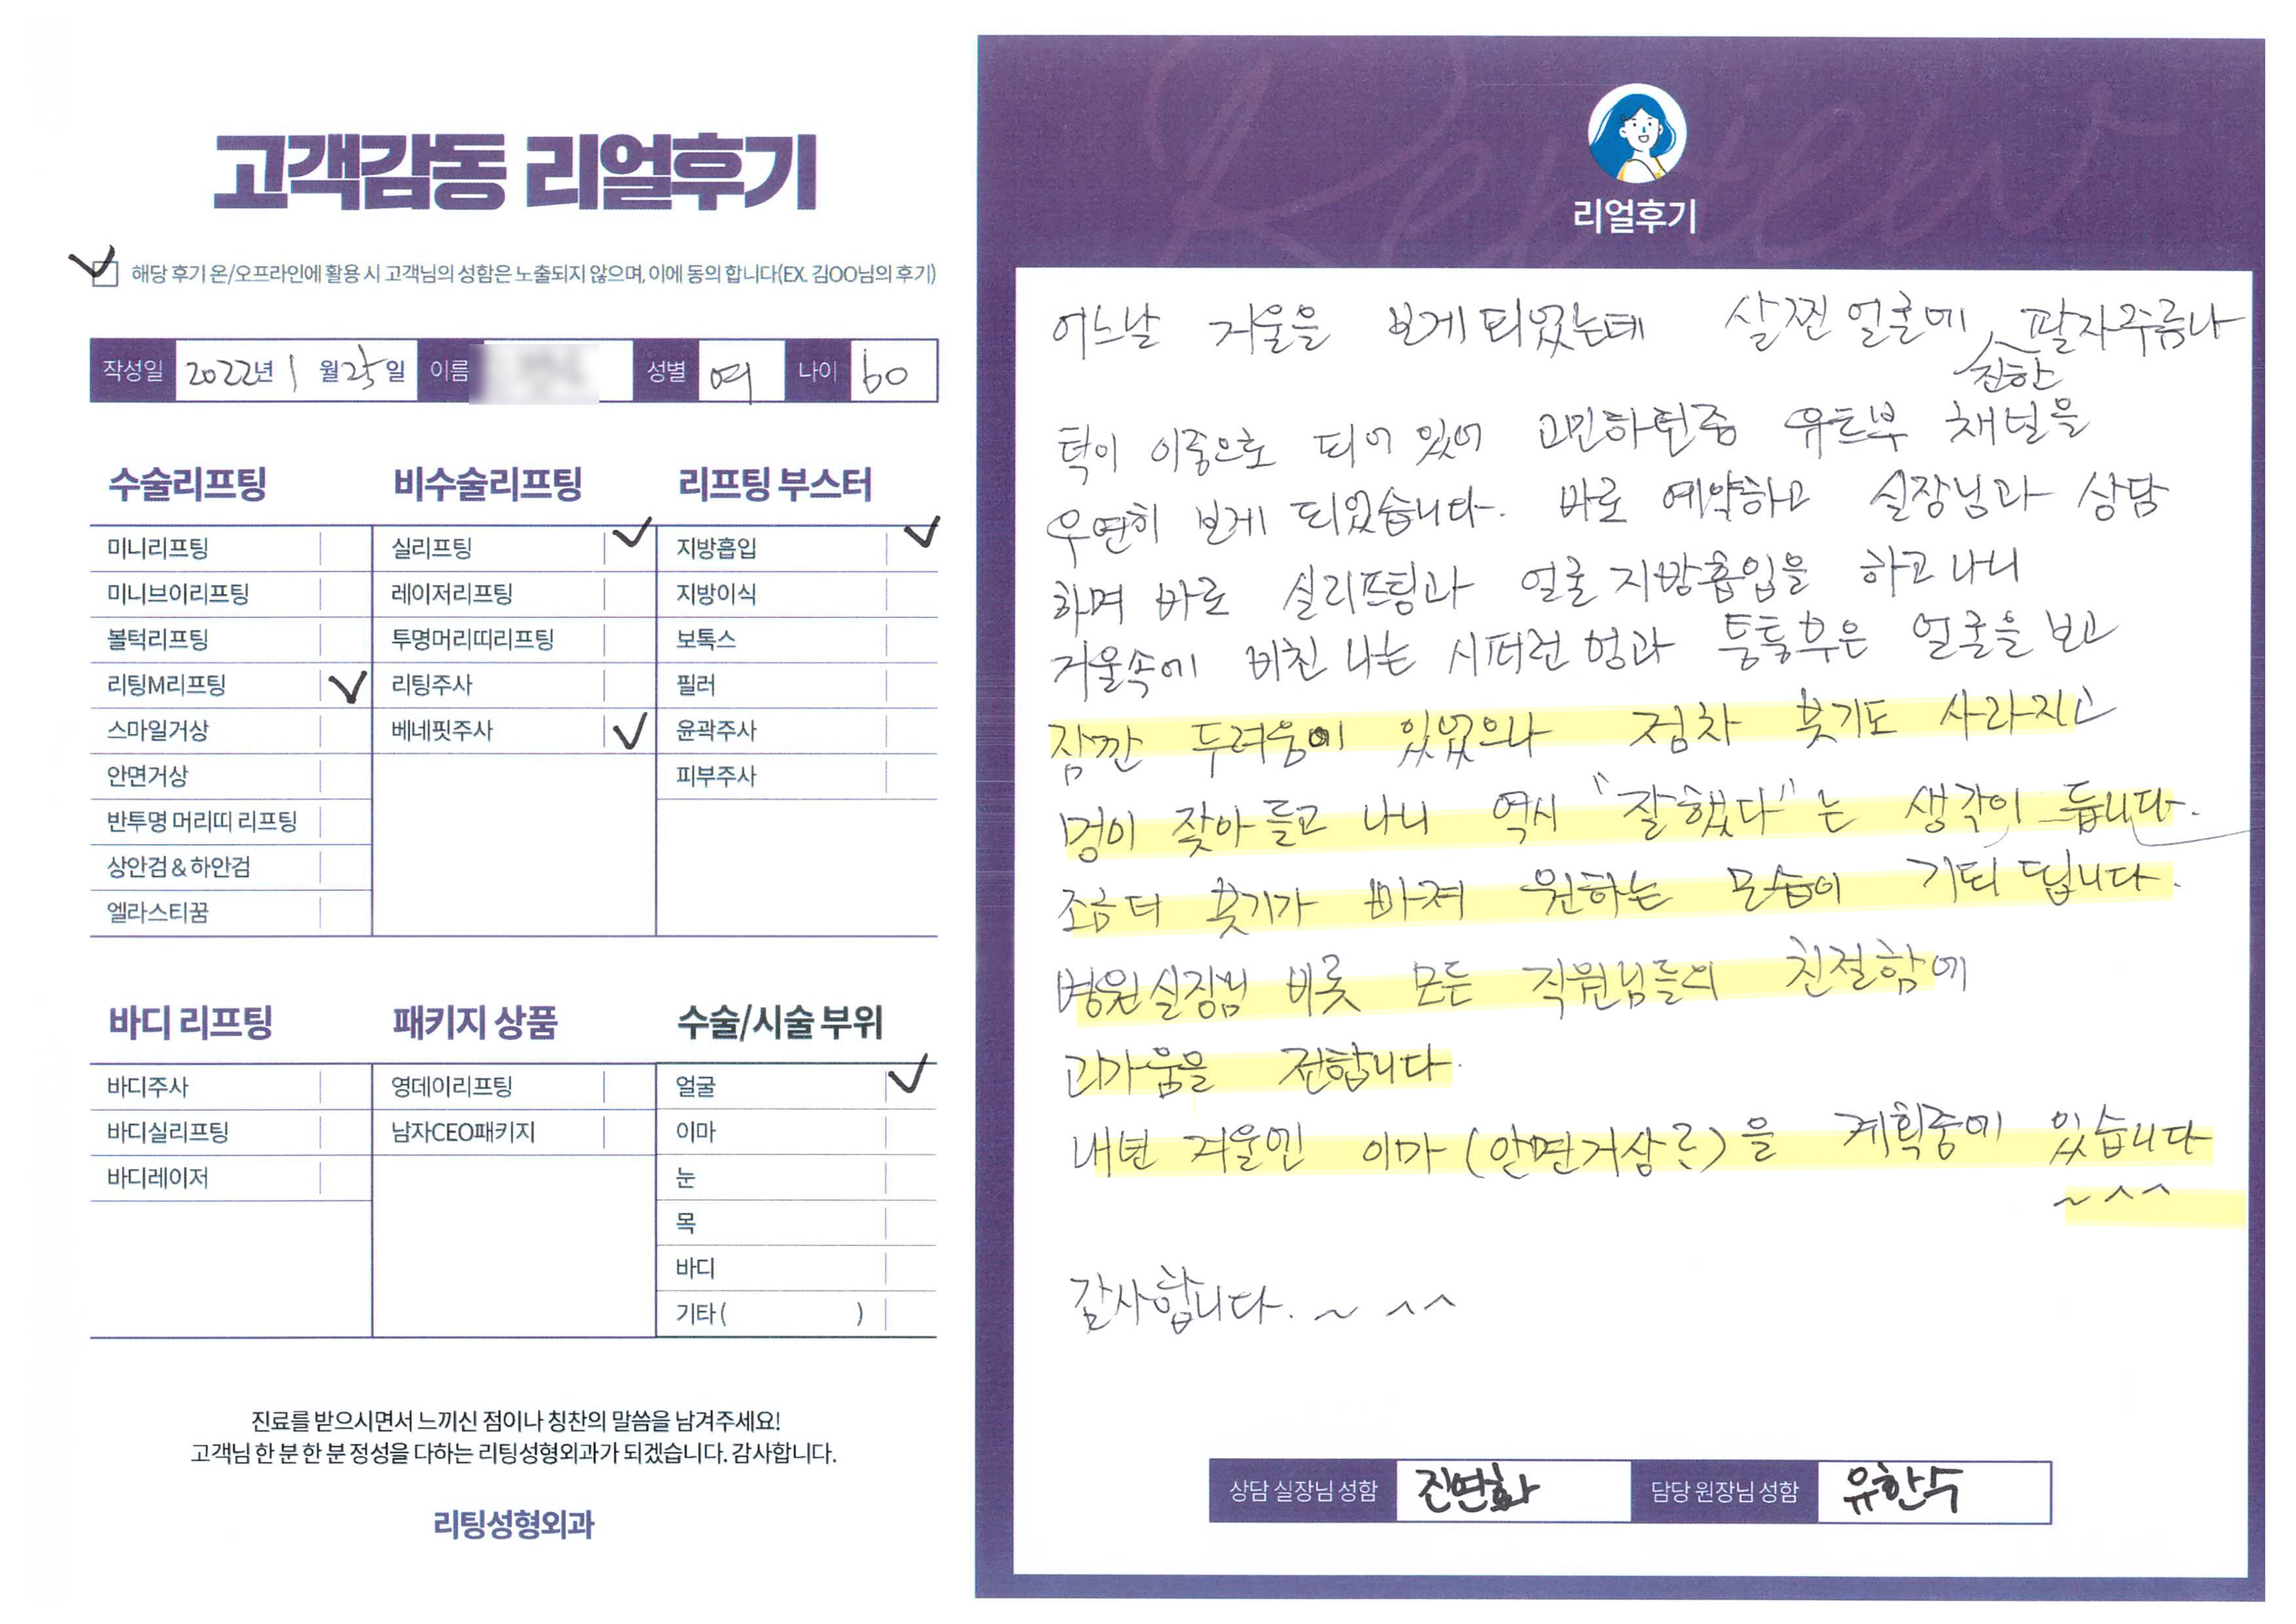 고객감동 리얼후기
해당 후기 온/오프라인에 활용 시 고객님의 성함은 노출되지 않으며, 이에 동의 합니다(EX. 김OO님의 후기)
작성일 2022년 1월 25일 이름 성별 여 나이 60
수술리프팅
미니리프팅
미니브이리프팅
볼턱리프팅
리팅M리프팅
스마일거상
안면거상
반투명 머리띠 리프팅
상안검 & 하안검
엘라스티꿈
비수술리프팅
실리프팅
레이저리프팅
투명머리띠리프팅
리팅주사
베네핏주사
리프팅 부스터
지방흡입
지방이식
보톡스
필러
윤곽주사
피부주사
바디 리프팅
바디주사
바디실리프팅
바디레이저
패키지 상품
영데이리프팅
남자CEO패키지
수술/시술 부위
얼굴
이마
눈
목
바디
기타 ( )
진료를 받으시면서 느끼신 점이나 칭찬의 말씀을 남겨주세요!
고객님 한 분 한 분 정성을 다하는 리팅성형외과가 되겠습니다. 감사합니다.
리팅성형외과
Review
리얼후기
어느날 거울을 보게 되었는데 살찐 얼굴에 진한 팔자주름나
턱이 이중으로 되어 있어 고민하던중 유트브 채널을
우연히 보게 되었습니다. 바로 예약하고 실장님과 상담
하며 바로 실리프팅과 얼굴 지방흡입을 하고 나니
거울속에 비친 나는 시퍼런 멍과 퉁퉁부은 얼굴을 보고
잠깐 두려움이 있었으나 점차 붓기도 사라지고
멍이 잦아 들고 나니 역시 "잘했다"는 생각이 듭니다.
조금 더 붓기가 빠져 원하는 모습이 기되 됩니다.
병원실장님 비롯 모든 직원님들의 친절함에
고마움을 전합니다.
내년 겨울엔 이마 (안면거상?)을 계획중에 있습니다
~ ^^
감사합니다. ~ ^^
상담 실장님 성함 진연화 담당 원장님 성함 유한수